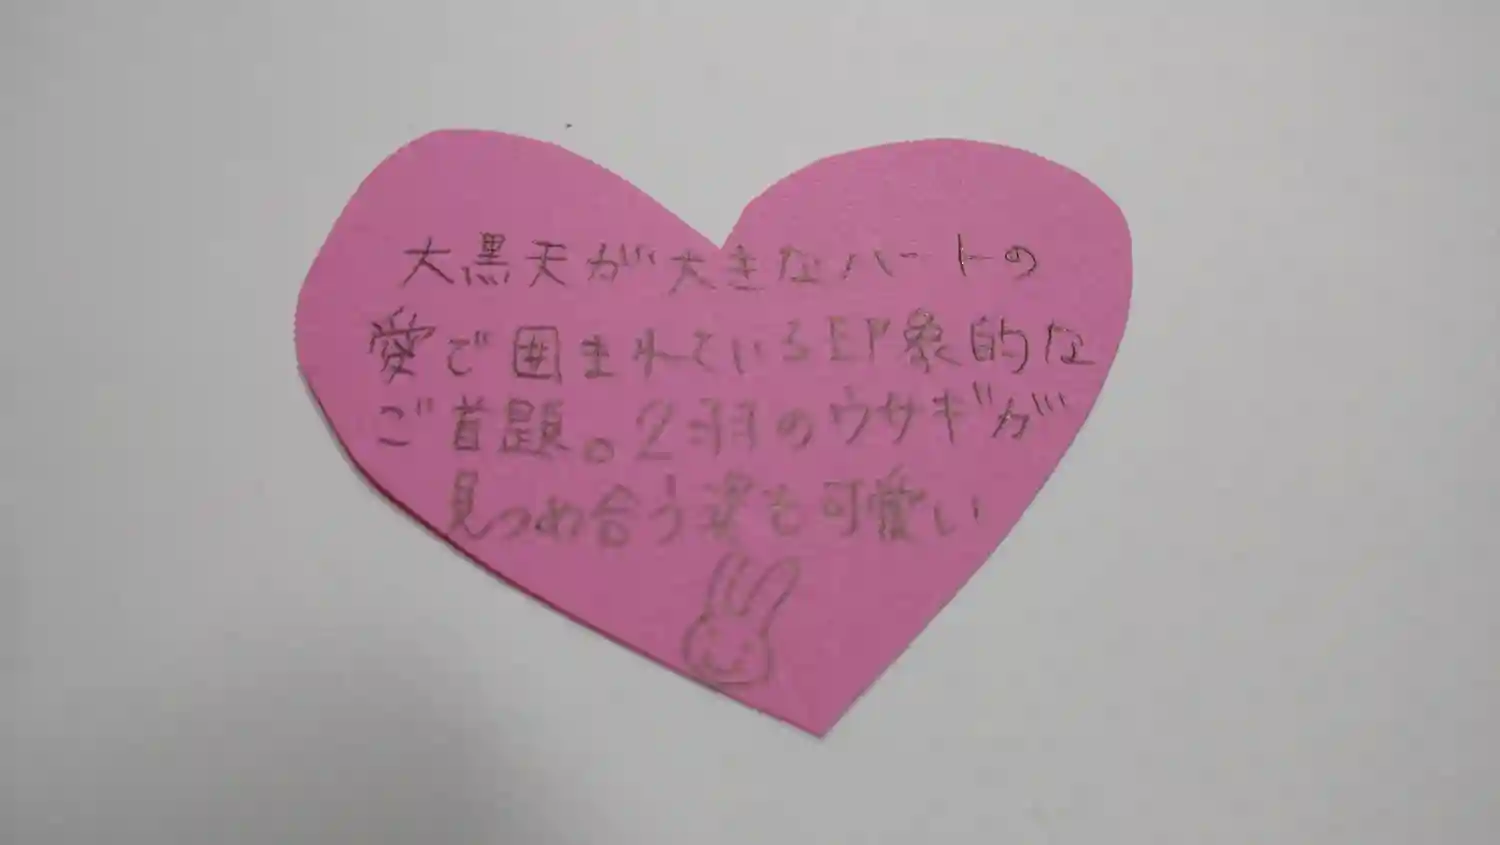 大黒天が大きなハートの
愛で囲まれている印象的な
ご首題。2羽のウサギが
見つめ合う姿も可愛い